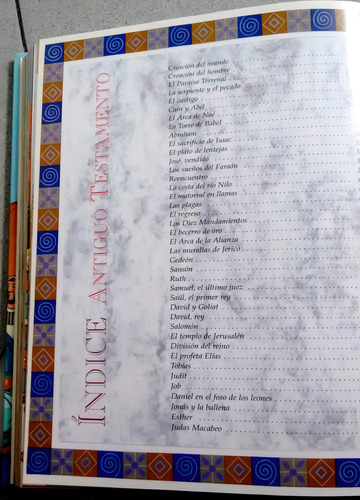 ÍNDICE ANTIGUO TESTAMENTO
Creación del mundo
Creación del hombre
El Paraíso Terrenal
La serpiente y el pecado
El castigo
Caín y Abel
El Arca de Noé
La Torre de Babel
Abraham
El sacrificio de Isaac
El plato de lentejas
José, vendido
Los sueños del Faraón
Reencuentro
La cesta del río Nilo
El matorral en llamas
Las plagas
El regreso
Los Diez Mandamientos
El becerro de oro
El Arca de la Alianza
Las murallas de Jericó
Gedeón
Sansón
Ruth
Samuel, el último juez
Saúl, el primer rey
David y Goliat
David, rey
Salomón
El templo de Jerusalén
División del reino
El profeta Elías
Tobías
Judit
Job
Daniel en el foso de los leones
Jonás y la ballena
Esther
Judas Macabeo